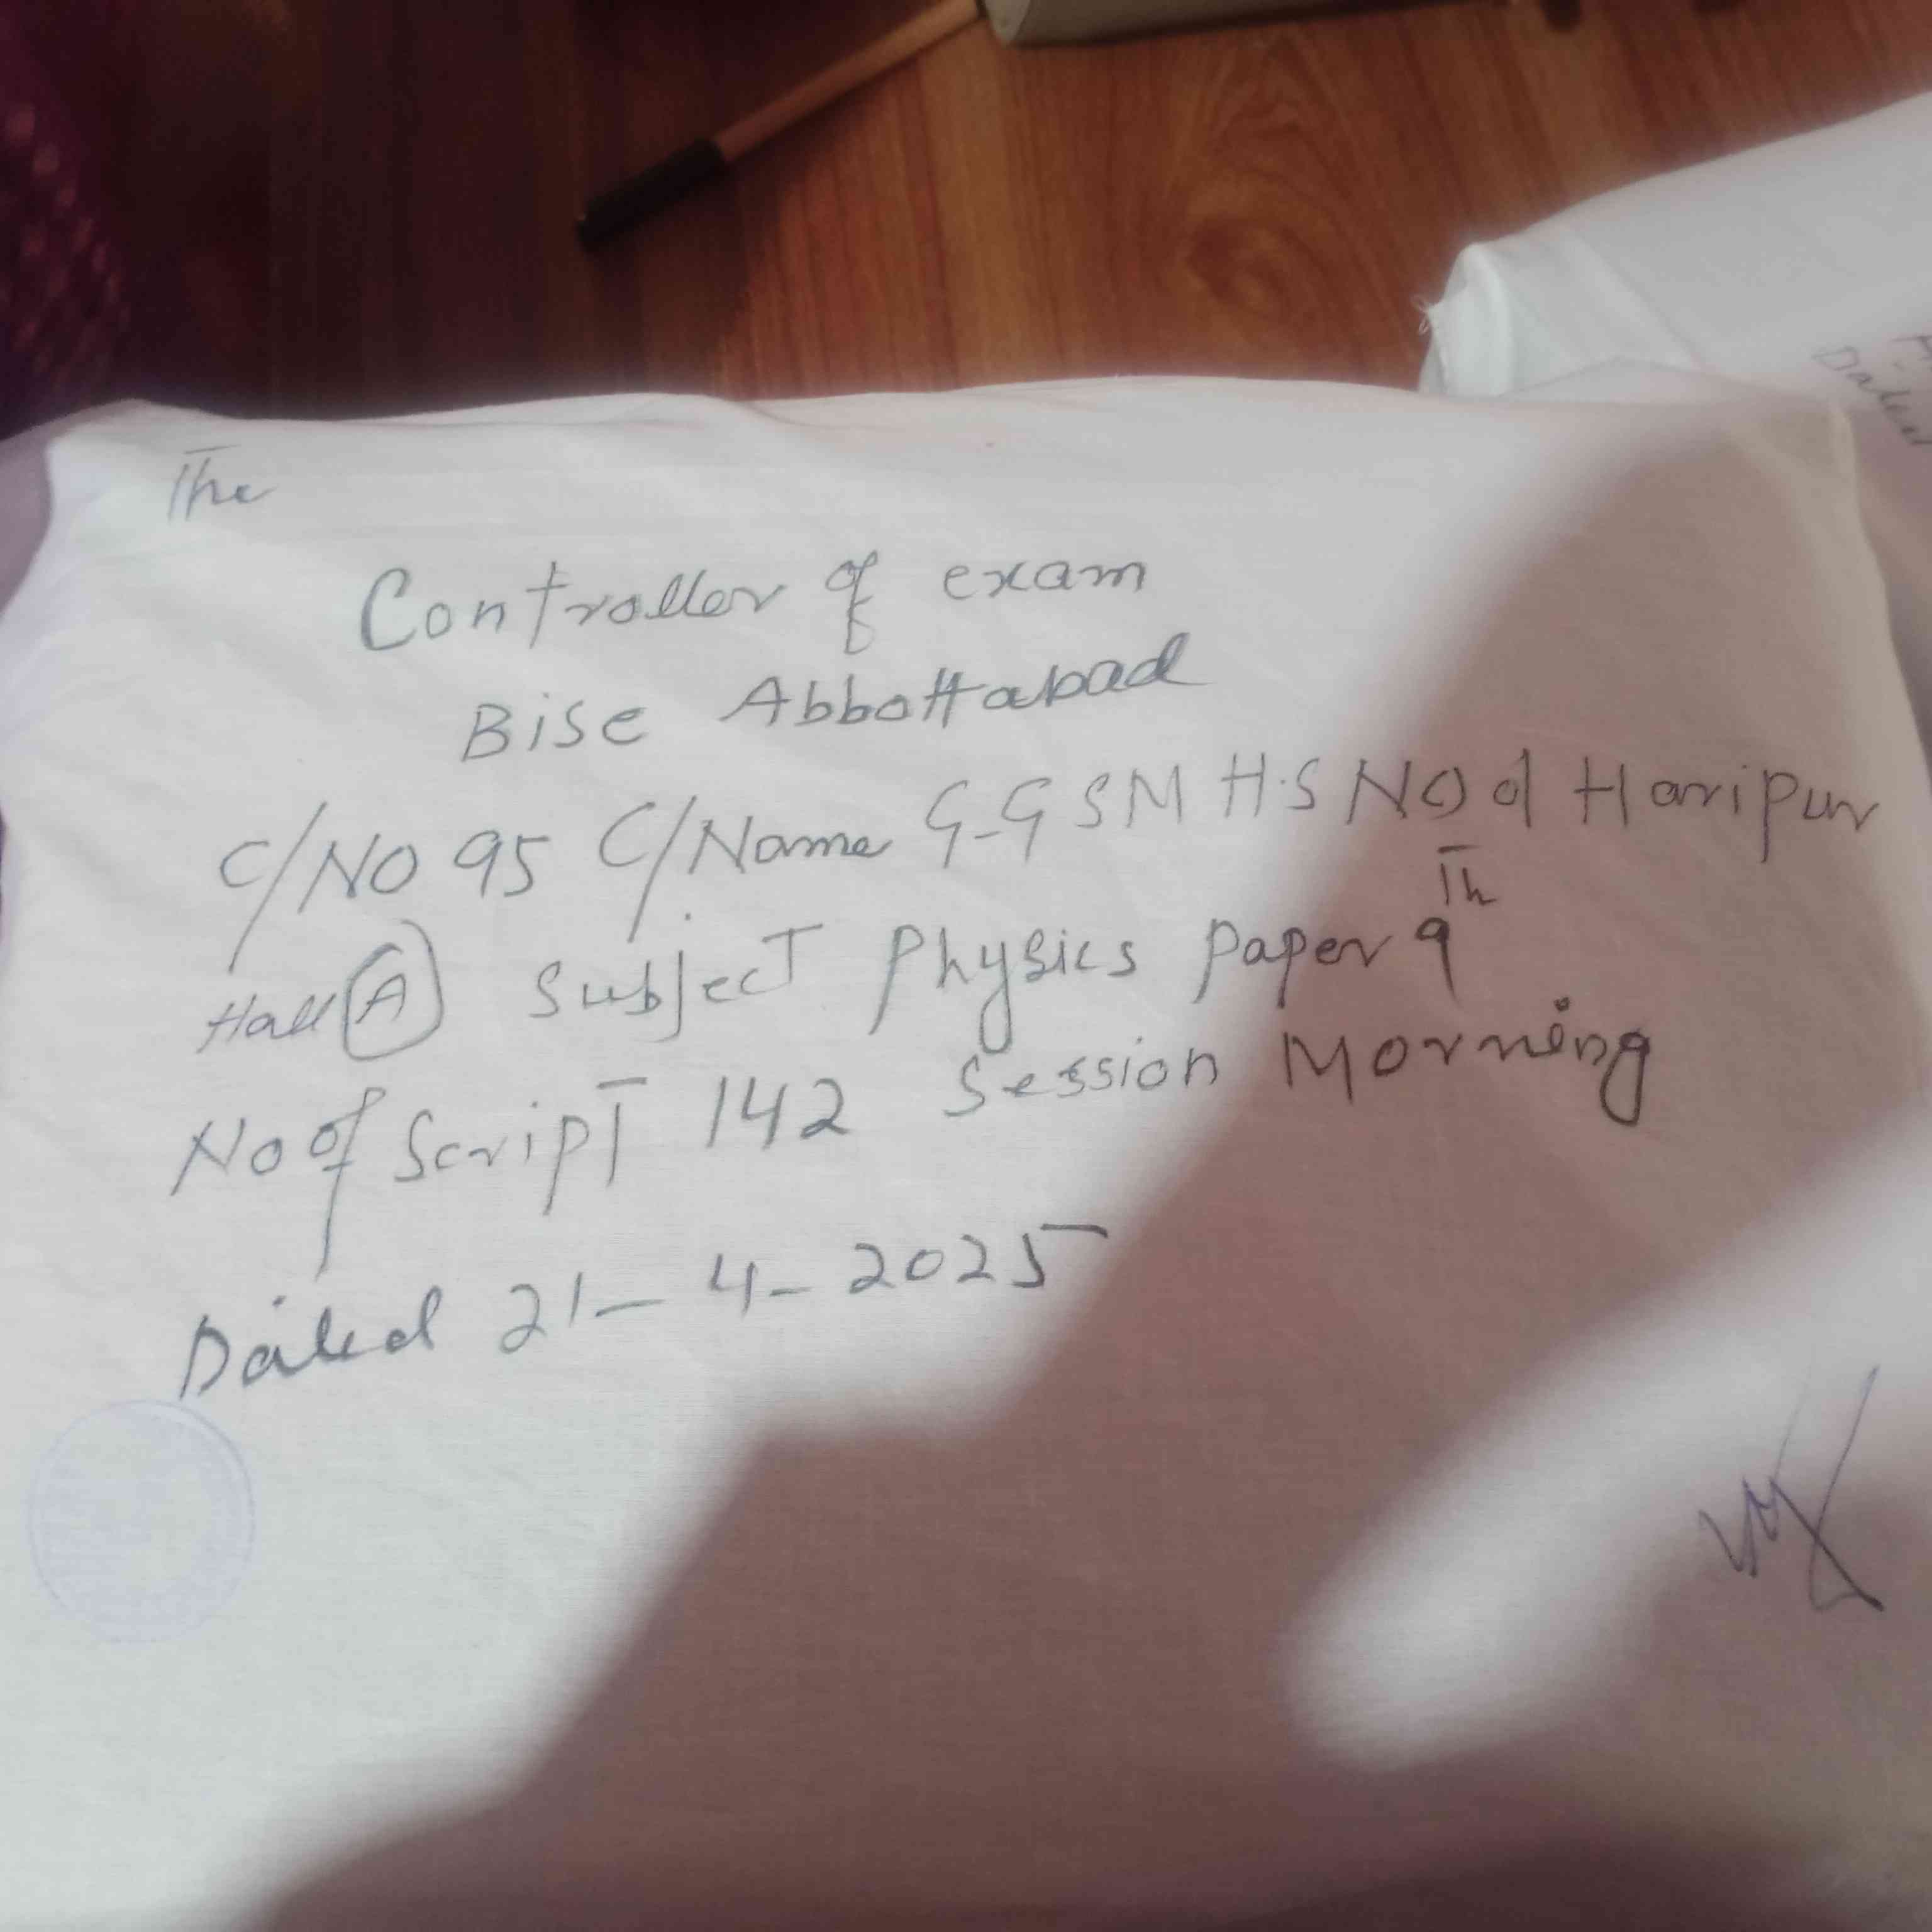 The
Controller of exam
Bise Abbottabad
C/NO 95 C/Name G-G S M H.S NO 1 Haripur
Hall A Subject Physics Paper 9Th
No of Script 142 Session Morning
Dated 21-4-2025
Dated